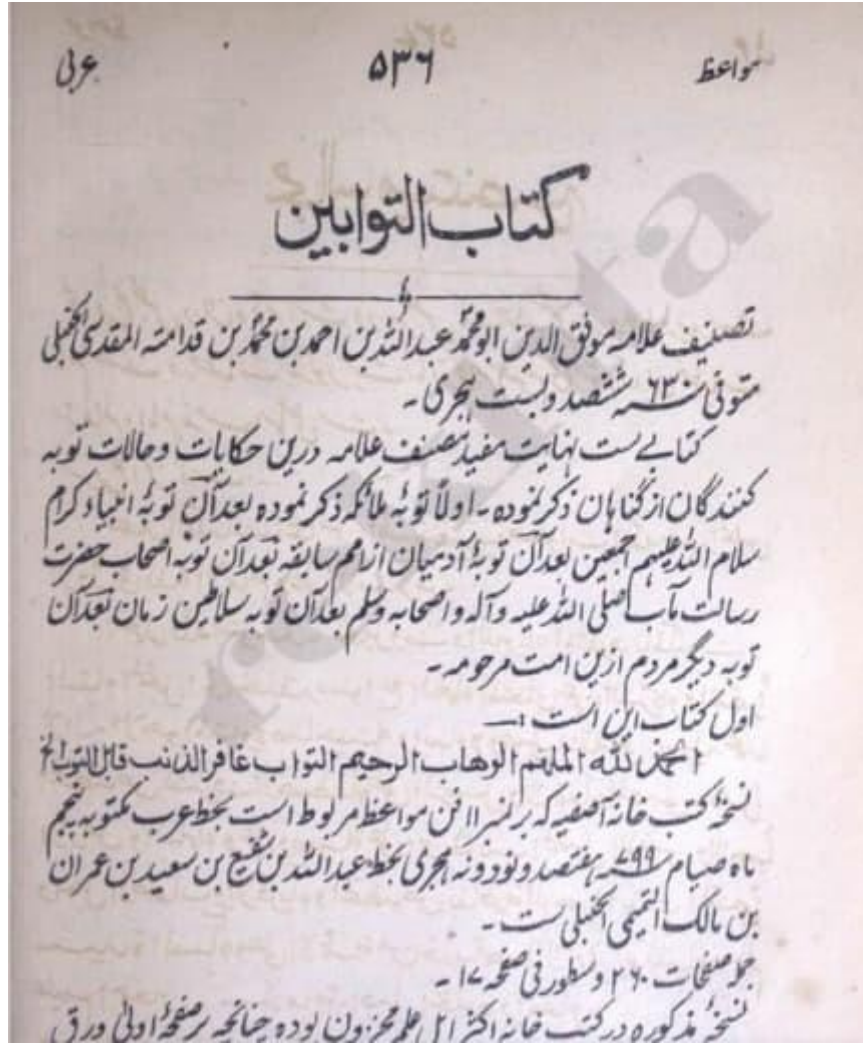 مواعظ ۵۳۶ عربی
کتاب التوابین
تصنیف علامہ موفق الدین ابو محمد عبد اللہ بن احمد بن محمد بن قدامتہ المقدسی الحنبلی
متوفی سنہ ۶۲۰ ششصد و بست ہجری ۔
کتابے ست نہایت مفید مصنف علامہ درین حکایات و حالات توبہ
کنندگان از گناہان ذکر نمودہ ۔ اولاً توبۂ ملائکہ ذکر نمودہ بعد آن توبۂ انبیاء کرام
سلام اللہ علیہم اجمعین بعد آن توبۂ آدمیان از امم سابقہ بعد آن توبہ اصحاب حضرت
رسالت مآب صلی اللہ علیہ و آلہ و اصحابہ وسلم بعد آن توبہ سلاطین زمان بعد آن
توبہ دیگر مردم ازین امت مرحومہ ۔
اول کتاب این است :۔
الحمد للہ الملہم الوھاب الرحیم التواب غافر الذنب قابل التوب الخ
نسخۂ کتب خانہ آصفیہ کہ بر نمبر ۱۱ فن مواعظ مربوط است بخط عرب مکتوبہ پنجم
ماہ صیام سنہ ۷۹۹ ہفتصد و نود و نہ ہجری بخط عبد اللہ بن شفیع بن سعید بن عمران
بن مالک التمیمی الحنبلی ست ۔
جملہ صفحات ۲۶۰ و سطور فی صفحہ ۱۷ ۔
نسخۂ مذکورہ در کتب خانہ اکثر اہل علم مخزون بودہ چنانچہ بر صفحۂ اولیٰ ورق
rekhta